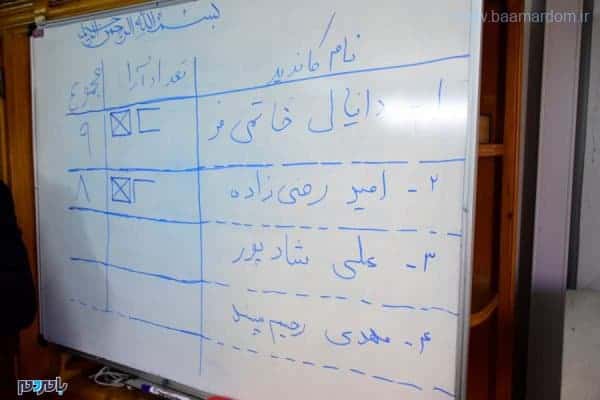 www.baamardom.ir
بسم الله الرحمن الرحیم
نام کاندید تعداد آرا مجموع
۱- دانیال خاتمی فر ۹
۲- امیر رضی زاده ۸
۳- علی شادپور
۴- مهدی رحیم
بامردم